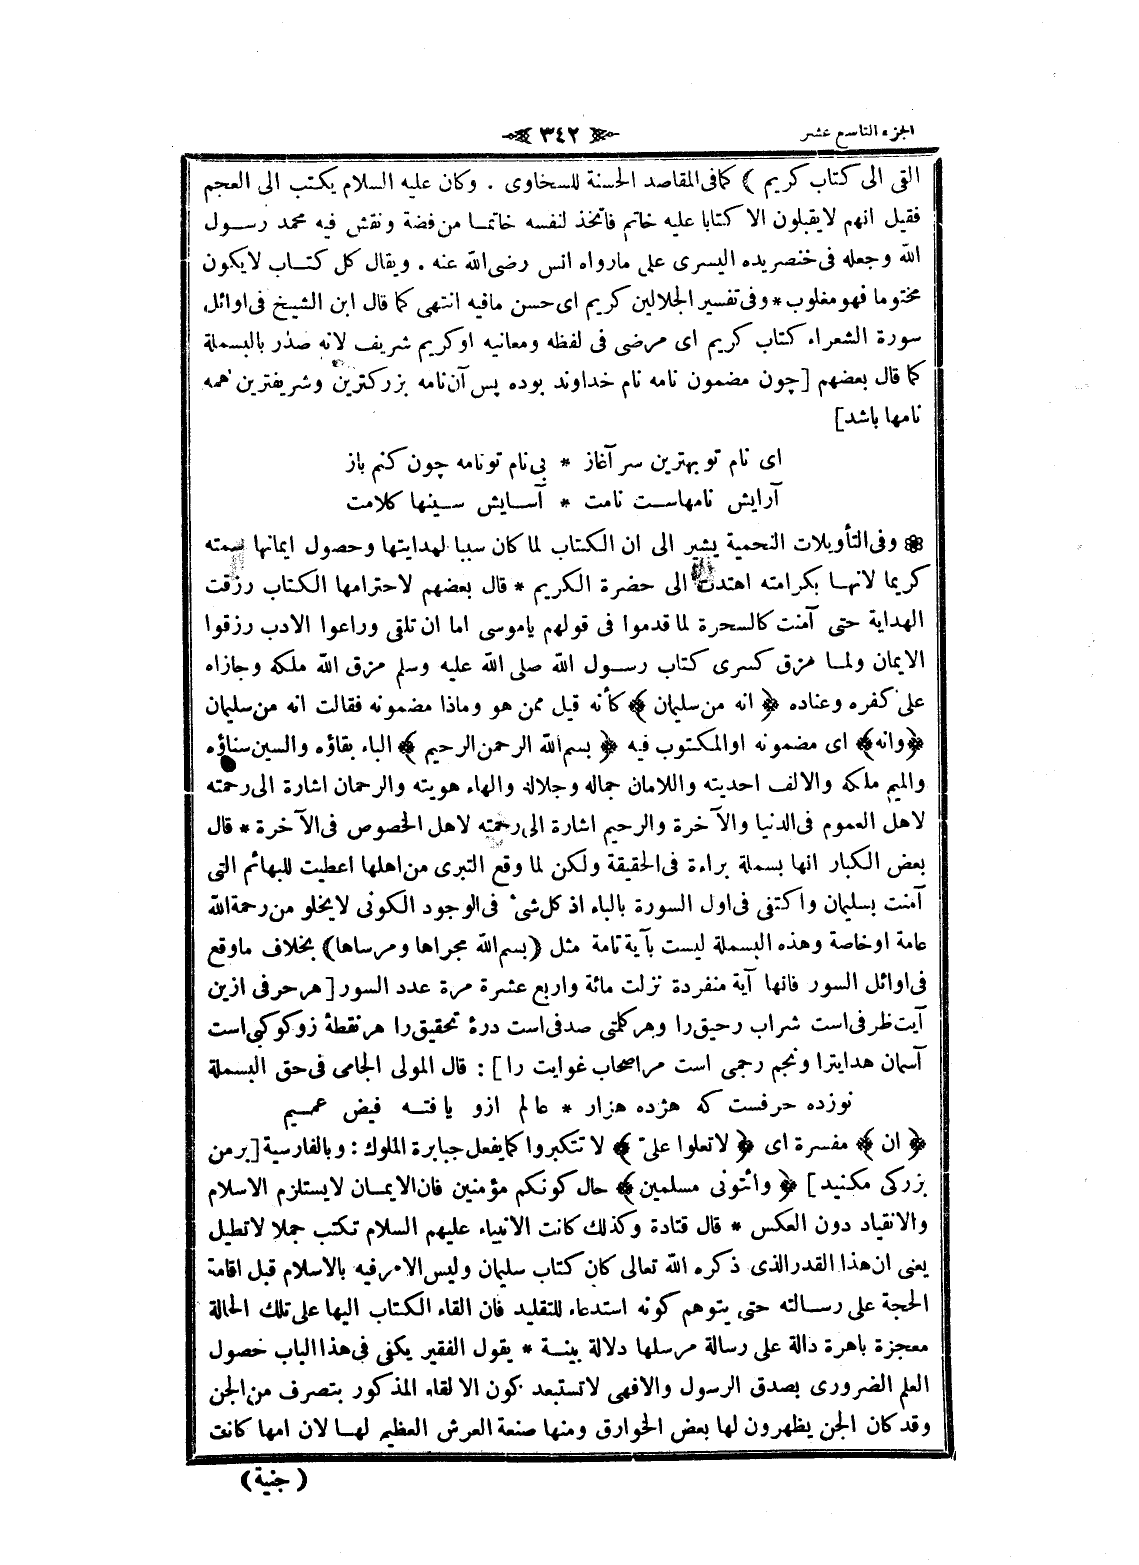 الجزء التاسع عشر
٣٤٢
القى الى كتاب كريم ) كما فى المقاصد الحسنة للسخاوى . وكان عليه السلام يكتب الى العجم
فقيل انهم لايقبلون الا كتابا عليه خاتم فاتخذ لنفسه خاتما من فضة ونقش فيه محمد رسول
الله وجعله فى خنصر يده اليسرى على مارواه انس رضى الله عنه . ويقال كل كتاب لايكون
مختوما فهو مغلوب * وفى تفسير الجلالين كريم اى حسن مافيه انتهى كما قال ابن الشيخ فى اوائل
سورة الشعراء كتاب كريم اى مرضى فى لفظه ومعانيه او كريم شريف لانه صدر بالبسملة
كما قال بعضهم [چون مضمون نامه نام خداوند بوده پس آن نامه بزركترين وشريفترين همه
نامها باشد]
اى نام تو بهترين سر آغاز * بى نام تو نامه چون كنم باز
آرايش نامهاست نامت * آسايش سينها كلامت
❁ وفى التأويلات النجمية يشير الى ان الكتاب لما كان سببا لهدايتها وحصول ايمانها سمته
كريما لانها بكرامته اهتدت الى حضرة الكريم * قال بعضهم لاحترامها الكتاب رزقت
الهداية حتى آمنت كالسحرة لما قدموا فى قولهم ياموسى اما ان تلقى وراعوا الادب رزقوا
الايمان ولما مزق كسرى كتاب رسول الله صلى الله عليه وسلم مزق الله ملكه وجازاه
على كفره وعناده ﴿ انه من سليمان ﴾ كأنه قيل ممن هو وماذا مضمونه فقالت انه من سليمان
﴿وانه﴾ اى مضمونه او المكتوب فيه ﴿ بسم الله الرحمن الرحيم ﴾ الباء بقاؤه والسين سناؤه
والميم ملكه والالف احديته واللامان جماله وجلاله والهاء هويته والرحمان اشارة الى رحمته
لاهل العموم فى الدنيا والآخرة والرحيم اشارة الى رحمته لاهل الخصوص فى الآخرة * قال
بعض الكبار انها بسملة براءة فى الحقيقة ولكن لما وقع التبرى من اهلها اعطيت للبهائم التى
آمنت بسليمان واكتفى فى اول السورة بالباء اذ كل شئ فى الوجود الكونى لايخلو من رحمة الله
عامة او خاصة وهذه البسملة ليست بآية تامة مثل (بسم الله مجراها ومرساها) بخلاف ماوقع
فى اوائل السور فانها آية منفردة نزلت مائة واربع عشرة مرة عدد السور [هر حرفى ازين
آيت ظرفى است شراب رحيق را وهر كلمتى صدفى است درۀ تحقيق را هر نقطۀ زو كوكبى است
آسمان هدايترا ونجم رجمى است مر اصحاب غوايت را ] : قال المولى الجامى فى حق البسملة
نوزده حرفست كه هژده هزار * عالم ازو يافته فيض عميم
﴿ ان ﴾ مفسرة اى ﴿ لاتعلوا علىّ ﴾ لاتتكبروا كما يفعل جبابرة الملوك : وبالفارسية [بر من
بزركى مكنيد ] ﴿ وائتونى مسلمين ﴾ حال كونكم مؤمنين فان الايمان لايستلزم الاسلام
والانقياد دون العكس * قال قتادة وكذلك كانت الانبياء عليهم السلام تكتب جملا لاتطيل
يعنى ان هذا القدر الذى ذكره الله تعالى كان كتاب سليمان وليس الامر فيه بالاسلام قبل اقامة
الحجة على رسالته حتى يتوهم كونه استدعاء للتقليد فان القاء الكتاب اليها على تلك الحالة
معجزة باهرة دالة على رسالة مرسلها دلالة بينة * يقول الفقير يكفى فى هذا الباب حصول
العلم الضرورى بصدق الرسول والافهى لاتستبعد كون الالقاء المذكور بتصرف من الجن
وقد كان الجن يظهرون لها بعض الخوارق ومنها صنعة العرش العظيم لها لان امها كانت
(جنية)